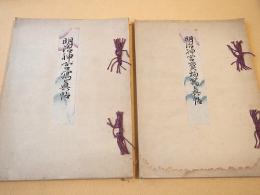 明治神宮寫真帖
明治神宮寳物寫真帖